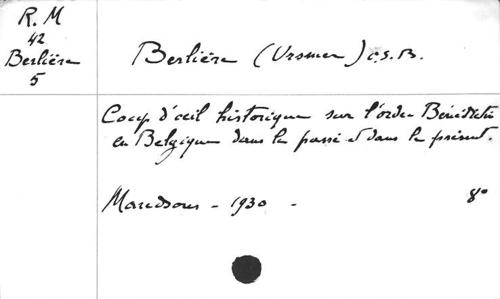 R. M
42
Berlière
5
Berlière (Ursmer) o.s.B.
Coup d'œil historique sur l'ordre Bénédictin
en Belgique dans le passé et dans le présent.
Maredsous - 1930 - 8°